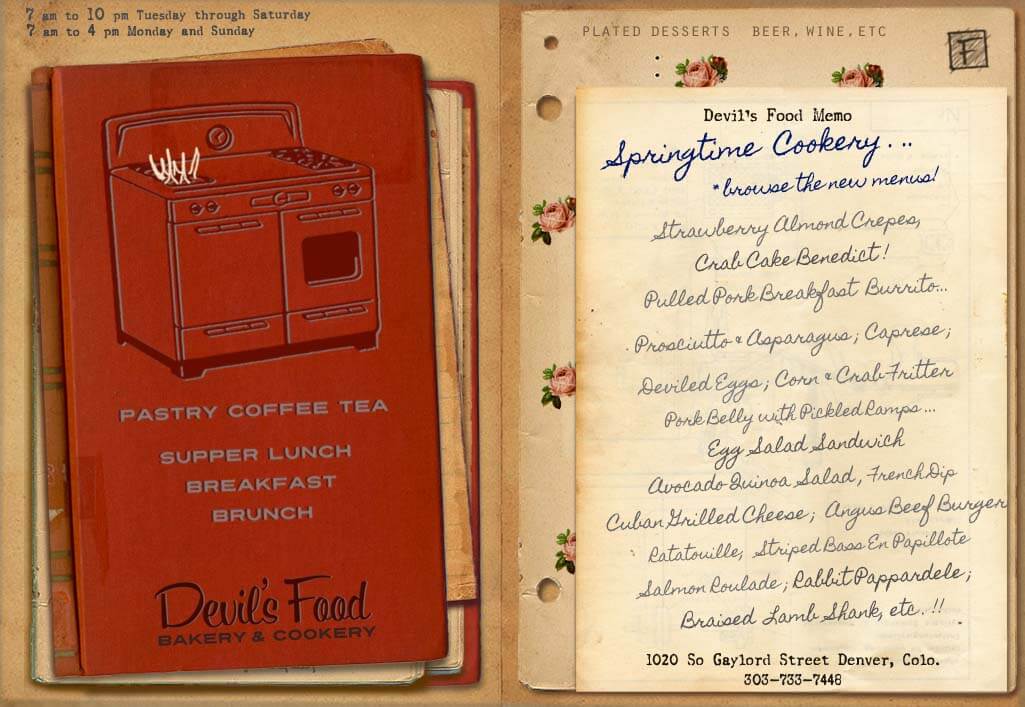 7 am to 10 pm Tuesday through Saturday
7 am to 4 pm Monday and Sunday
PASTRY COFFEE TEA
SUPPER LUNCH
BREAKFAST
BRUNCH
Devil's Food
BAKERY & COOKERY
PLATED DESSERTS BEER, WINE, ETC
F
Devil's Food Memo
Springtime Cookery...
*browse the new menus!
Strawberry Almond Crepes,
Crab Cake Benedict!
Pulled Pork Breakfast Burrito...
. Prosciutto & Asparagus; Caprese;
Deviled Eggs; Corn & Crab Fritter
Pork Belly with Pickled Ramps...
Egg Salad Sandwich
Avocado Quinoa Salad, French Dip
Cuban Grilled Cheese; Angus Beef Burger
Ratatouille, Striped Bass En Papillote
Salmon Roulade; Rabbit Pappardele;
Braised Lamb Shank, etc. !!
1020 So Gaylord Street Denver, Colo.
303-733-7448